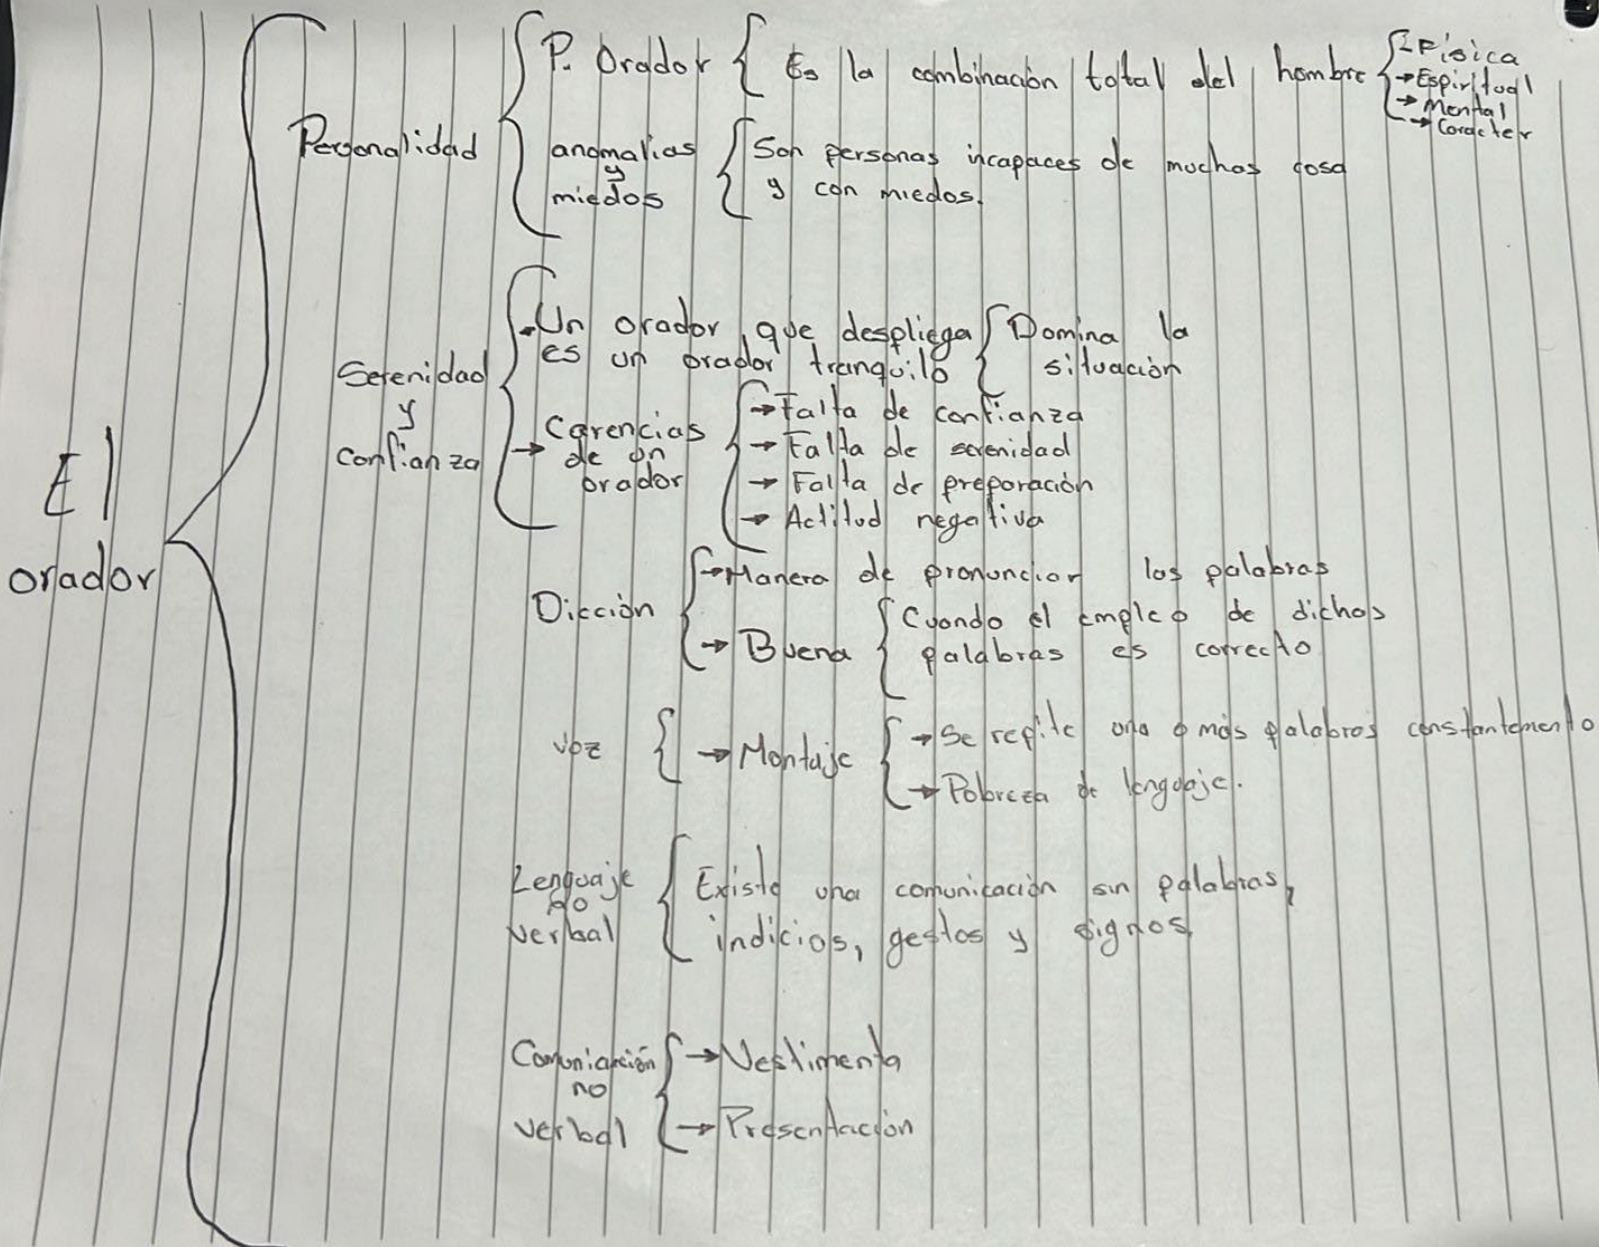 El
orador
Personalidad
P. Orador
Es la combinación total del hombre
Física
→Espiritual
→Mental
→Caracter
anomalias
y
miedos
Son personas incapaces de muchas cosa
y con miedos.
Serenidad
y
confianza
Un orador que despliega
es un orador tranquilo
Domina la
situación
→ Carencias
de un
orador
→Falta de confianza
→ Falta de serenidad
→ Falta de preparación
→ Actitud negativa
Dicción
→Manera de pronunciar las palabras
→ Buena
Cuando el empleo de dichas
palabras es correcto
Voz
→ Montaje
→ Se repite una o más palabras constantemento
→ Pobreza de lenguaje.
Lenguaje
no
verbal
Existe una comunicación sin palabras,
indicios, gestos y signos
Comunicación
no
verbal
→ Vestimenta
→ Presentación